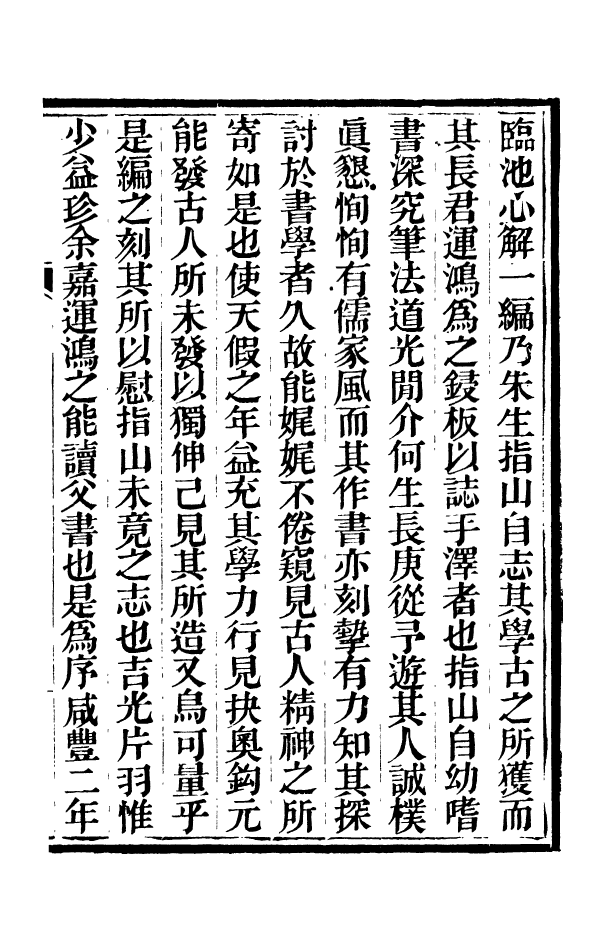 臨池心解一編乃朱生指山自志其學古之所獲而
其長君運鴻爲之鋟板以誌手澤者也指山自幼嗜
書深究筆法道光閒介何生長庚從予遊其人誠樸
眞懇恂恂有儒家風而其作書亦刻摯有力知其探
討於書學者久故能娓娓不倦窺見古人精神之所
寄如是也使天假之年益充其學力行見抉奧鈎元
能發古人所未發以獨伸己見其所造又烏可量乎
是編之刻其所以慰指山未竟之志也吉光片羽惟
少益珍余嘉運鴻之能讀父書也是爲序咸豐二年